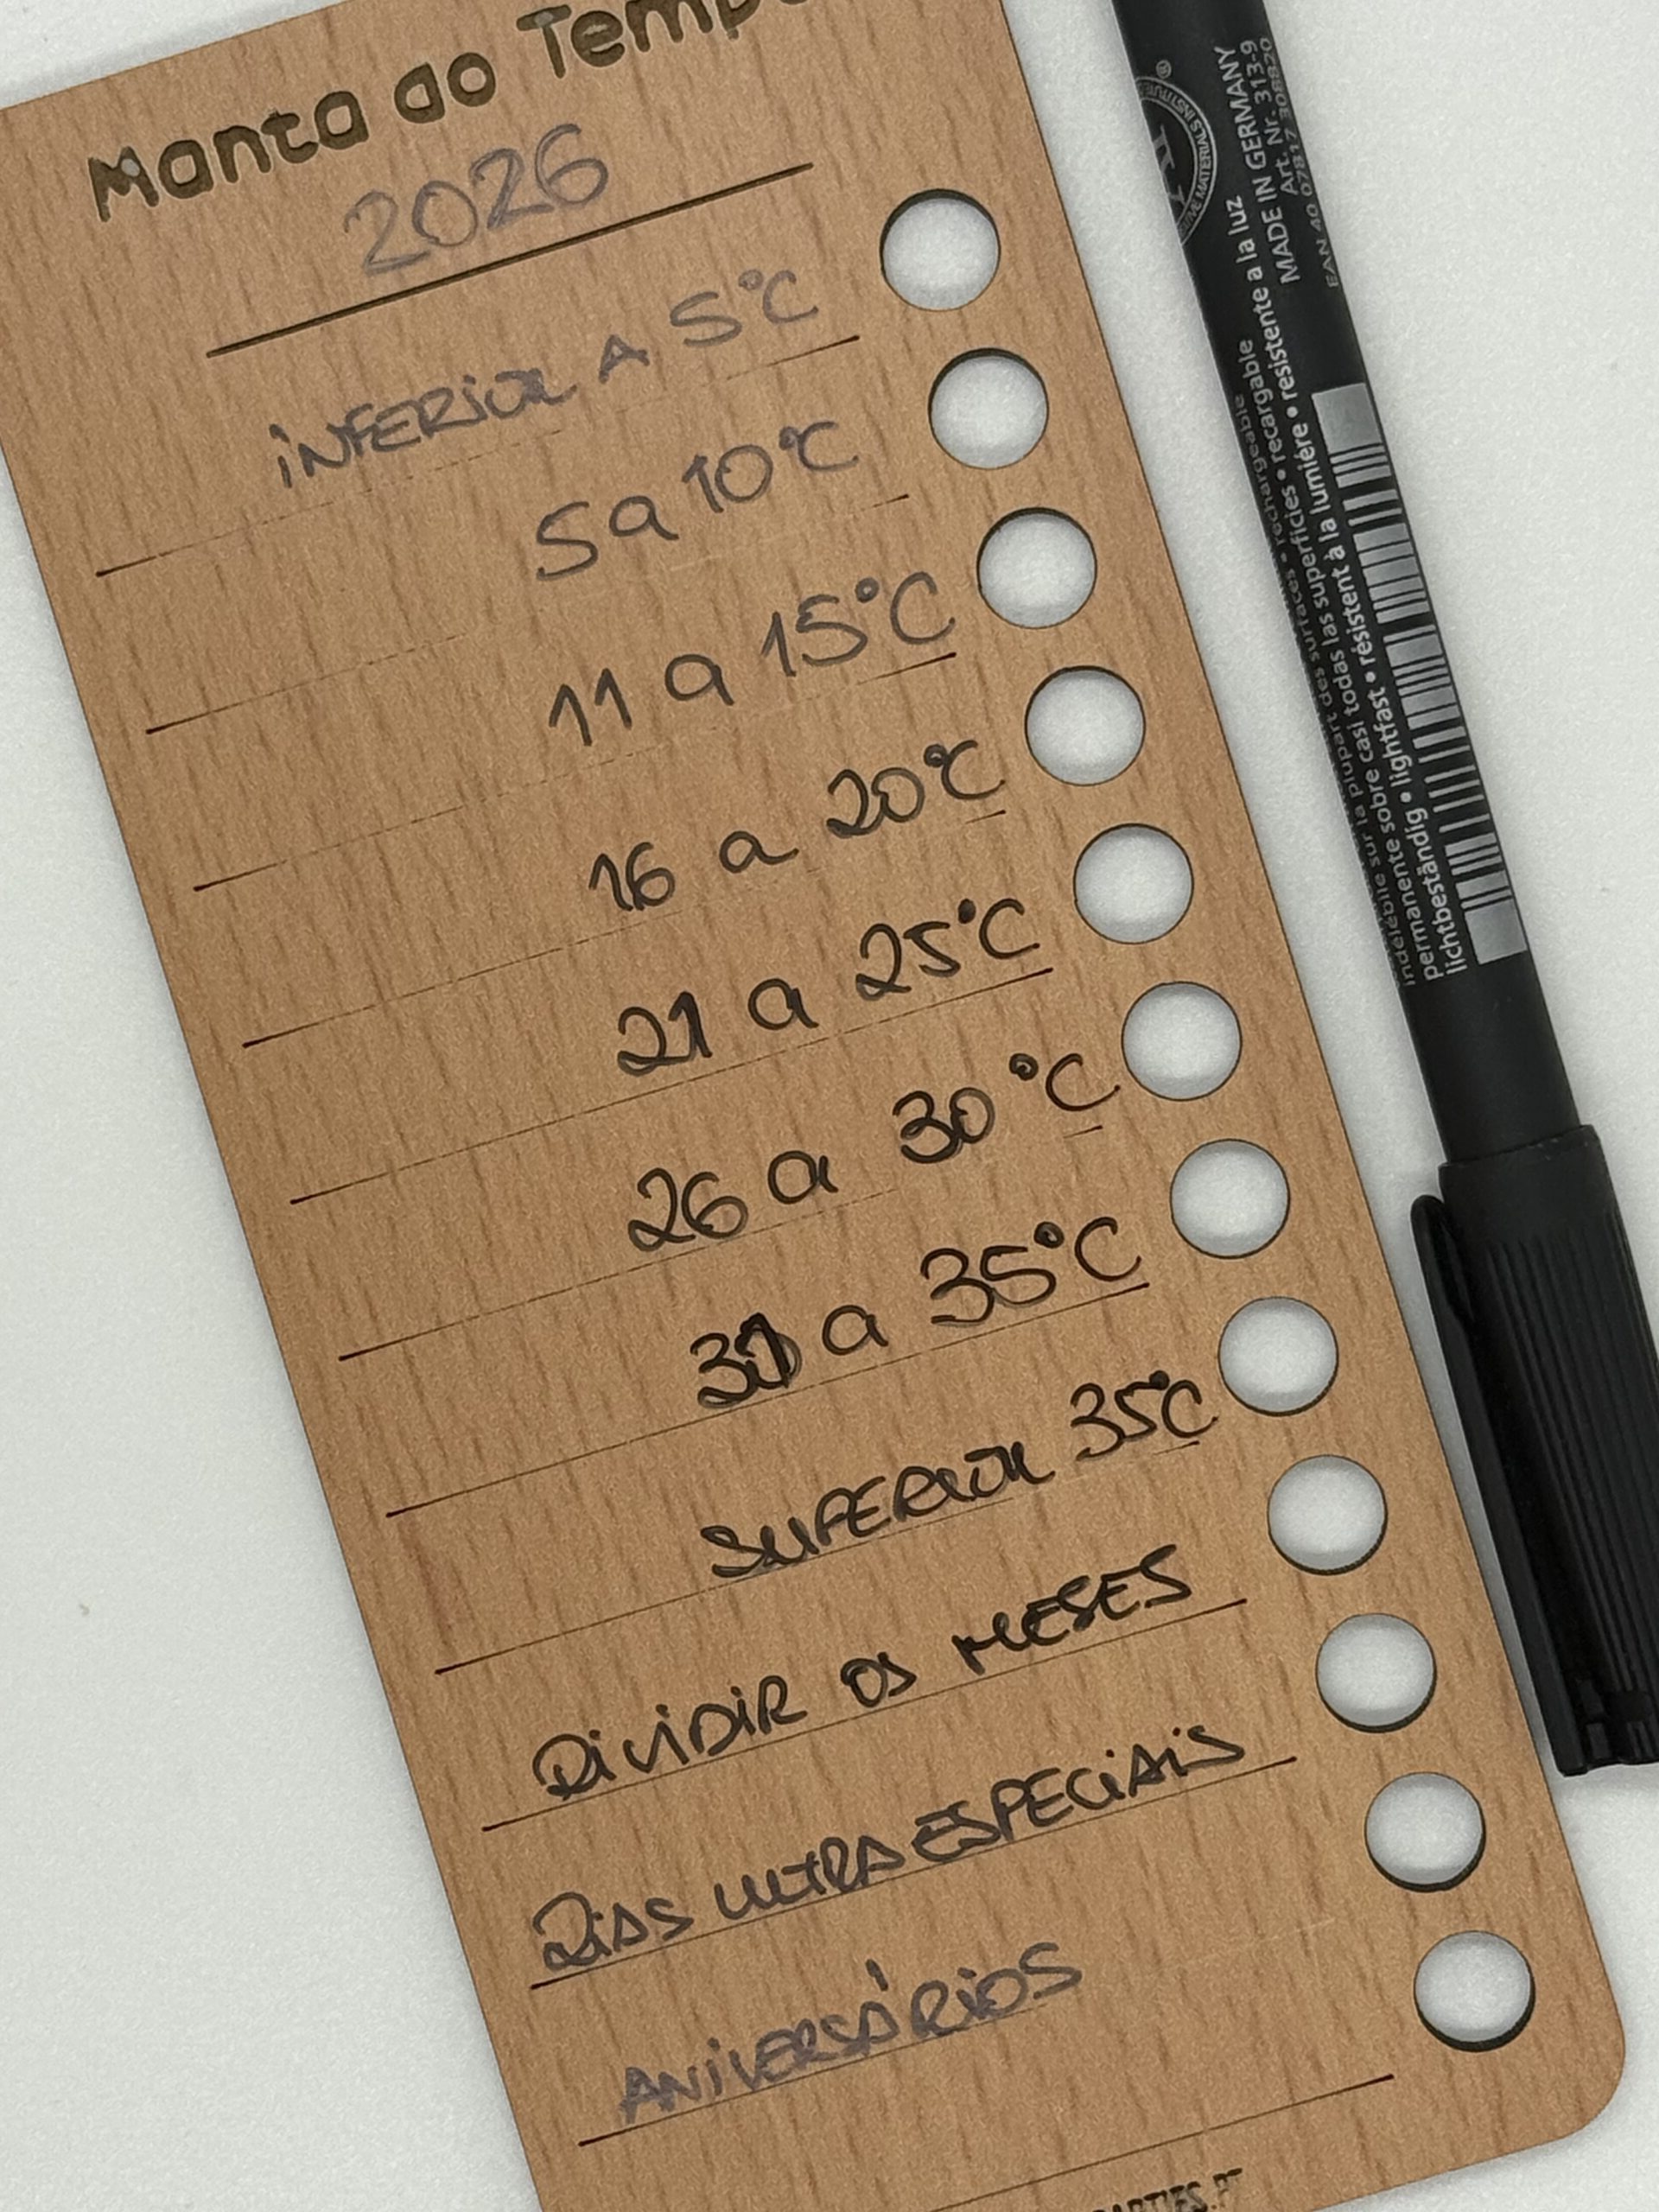 Manta do Tempo
2026
iNFERiOR A 5°C
5 a 10°C
11 a 15°C
16 a 20°C
21 a 25°C
26 a 30°C
31 a 35°C
SUPERIOR 35°C
DiViDiR OS MESES
DiAS ULTRA ESPECiAiS
ANiVERSÁRiOS
MADE IN GERMANY
Art. Nr. 313-9
rechargeable • recargable
indélébile sur la plupart des surfaces
permanente sobre casi todas las superficies • resistente a la luz
lichtbeständig • lightfast • résistent à la lumière